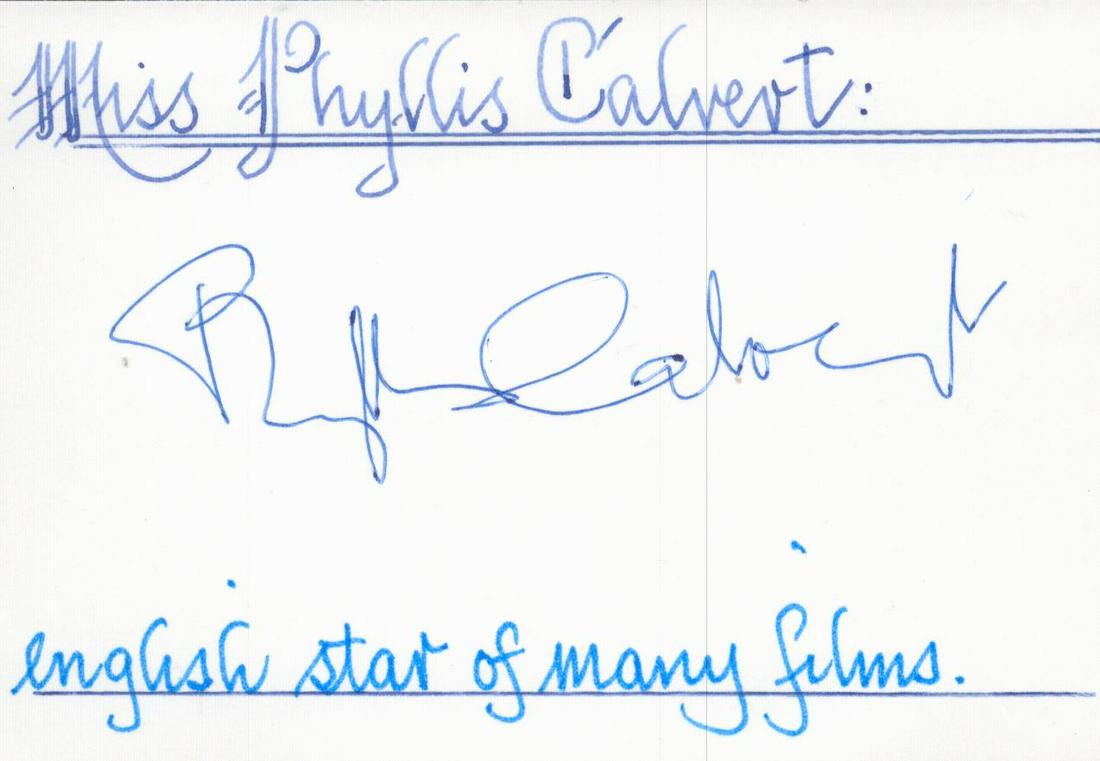 Miss Phyllis Calvert:
Phyllis Calvert
english star of many films.